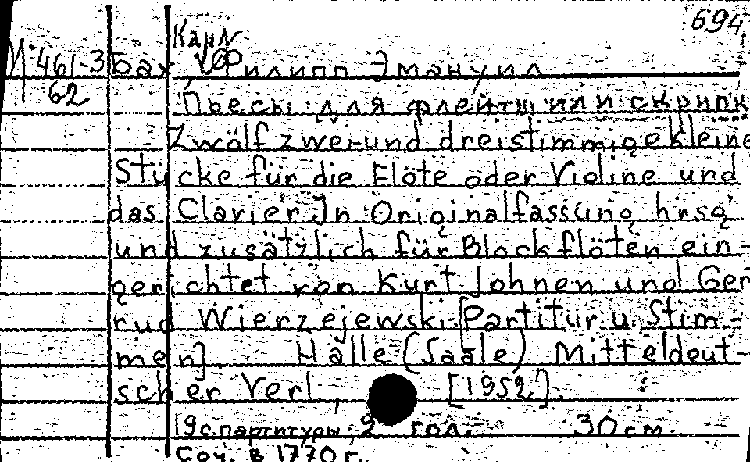 694
Карл
М 461-3 Бах, Филипп Эмануил
62
Пьесы для флейты или скрипк
Zwölf zwei-und dreistimmige kleine
Stücke für die Flöte oder Violine und
das Clavier. In Originalfassung hrsg
und zusätzlich für Blockflöten ein-
gerichtet von Kurt Johnen und Ger
rud Wierzejewski. [Partitur u. Stim-
men] Halle (Saale) Mitteldeut-
scher Verl, [1952].
19 с. партитуры, 2 гол. 30 см
Соч. в 1770 г.